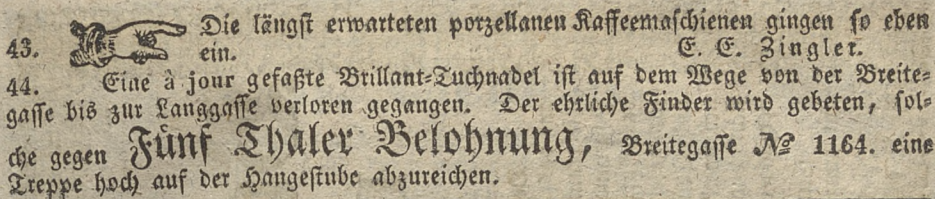 43. Die längst erwarteten porzellanen Kaffeemaschienen gingen so eben
ein. E. E. Zingler.
44. Eine à jour gefaßte Brillant-Tuchnadel ist auf dem Wege von der Breite-
gasse bis zur Langgasse verloren gegangen. Der ehrliche Finder wird gebeten, sol-
che gegen Fünf Thaler Belohnung, Breitegasse № 1164. eine
Treppe hoch auf der Hangestube abzureichen.